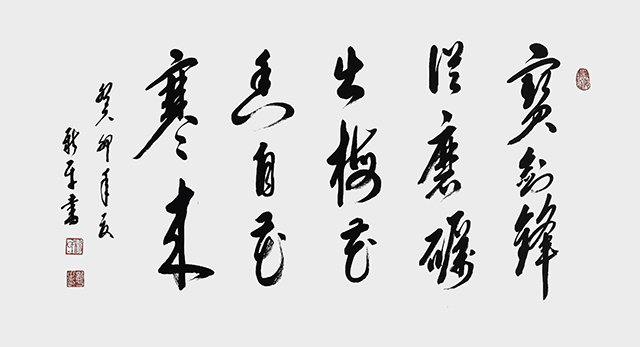 寶劍鋒
從磨礪
出梅花
香自苦
寒來
癸卯年夏
書